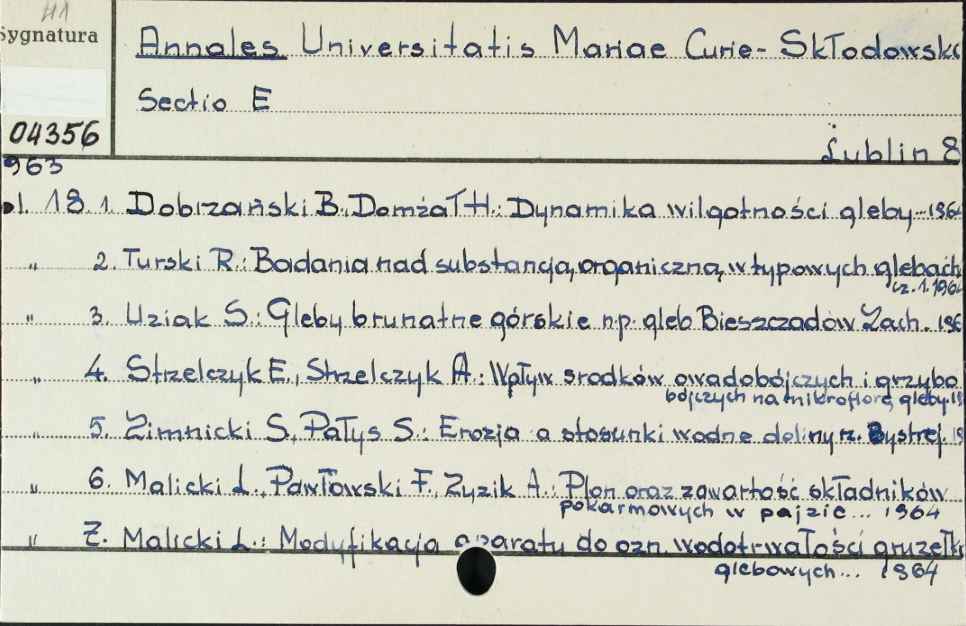 41
Sygnatura
Annales Universitatis Mariae Curie-Skłodowsk
Sectio E
04356
Lublin 8
963
l. 18. 1. Dobrzański B., Domżał H.: Dynamika wilgotności gleby...1964
" 2. Turski R.: Badania nad substancją organiczną w typowych glebach
cz. 1. 1964
" 3. Uziak S.: Gleby brunatne górskie n.p. gleb Bieszczadów Zach. 196
" 4. Strzelczyk E., Strzelczyk A.: Wpływ srodków owadobójczych i grzybo
bójczych na mikroflorę gleby. 19
" 5. Zimnicki S., Pałys S.: Erozja a stosunki wodne doliny rz. Bystrej. 19
" 6. Malicki L., Pawłowski F., Zyzik A.: Plon oraz zawartość składników
pokarmowych w pajzie... 1964
" 7. Malicki L.: Modyfikacja aparatu do ozn. wodotrwałości gruzełk
glebowych... 1964